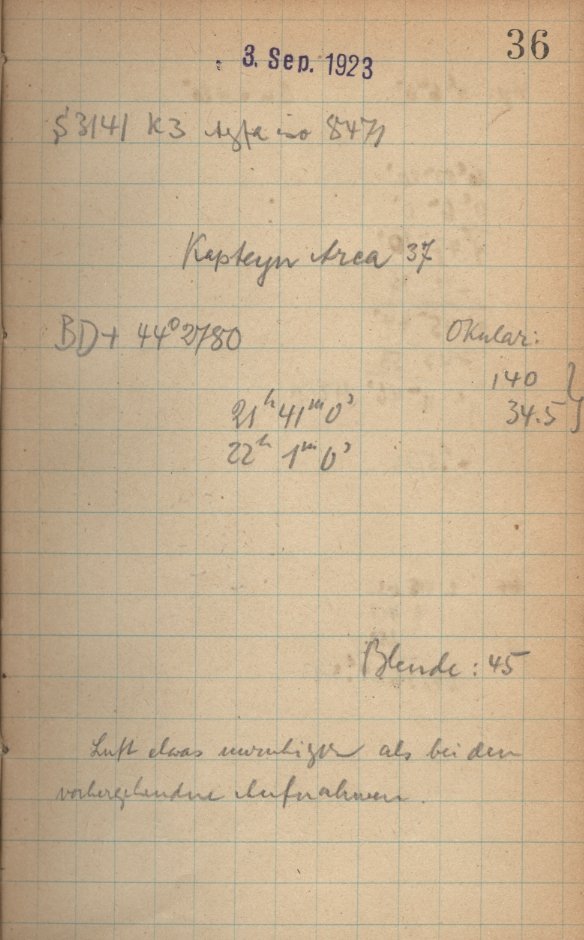 36
3. Sep. 1923
S 3141 K3 Agfa no 8471
Kapteyn Area 37
BD+ 44° 2780
Okular:
140
34.5
21ʰ 41ᵐ 0ˢ
22ʰ 1ᵐ 0ˢ
Blende: 45
Luft etwas unruhiger als bei den
vorhergehenden Aufnahmen.